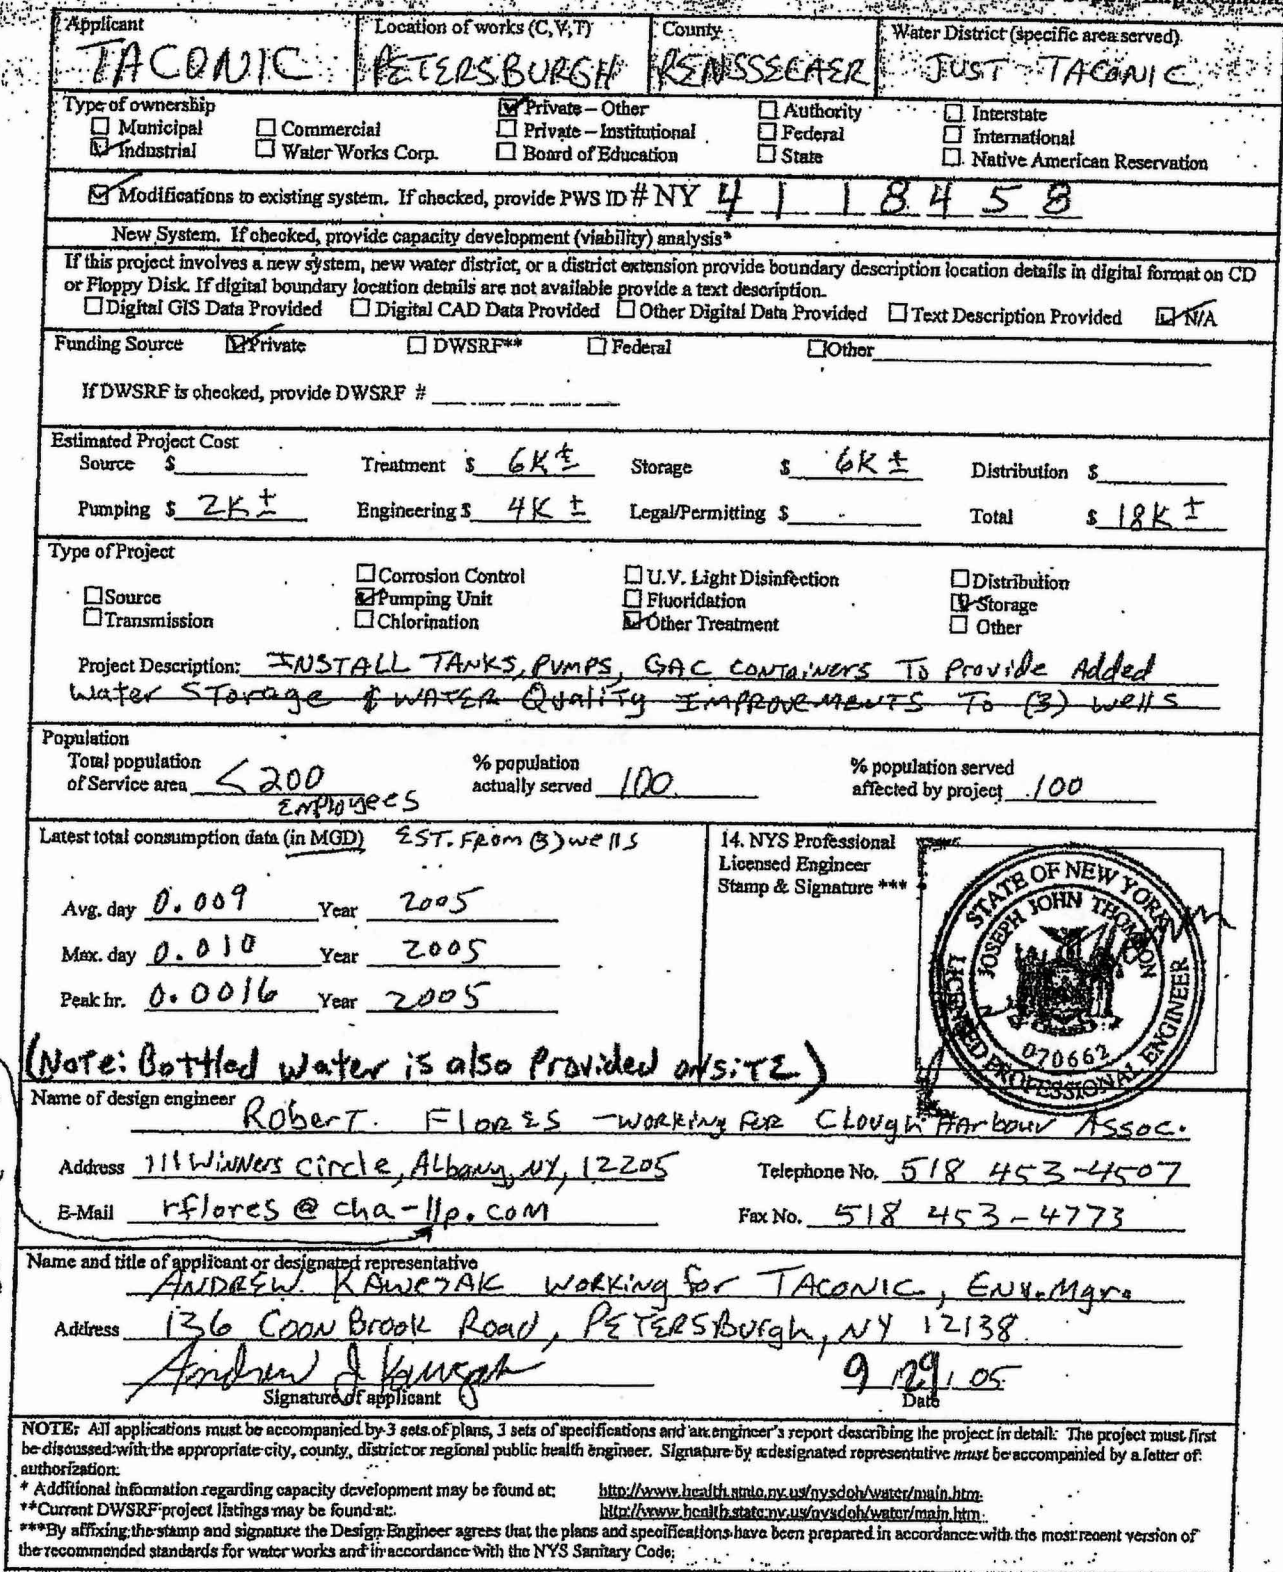 Applicant Location of works (C,V,T) County Water District (specific area served)
TACONIC PETERSBURGH RENSSELAER JUST TACONIC
Type of ownership
☑ Private – Other ☐ Authority ☐ Interstate
☐ Municipal ☐ Commercial ☐ Private – Institutional ☐ Federal ☐ International
☑ Industrial ☐ Water Works Corp. ☐ Board of Education ☐ State ☐ Native American Reservation
☑ Modifications to existing system. If checked, provide PWS ID # NY 4 1 1 8 4 5 8
New System. If checked, provide capacity development (viability) analysis*
If this project involves a new system, new water district, or a district extension provide boundary description location details in digital format on CD
or Floppy Disk. If digital boundary location details are not available provide a text description.
☐ Digital GIS Data Provided ☐ Digital CAD Data Provided ☐ Other Digital Data Provided ☐ Text Description Provided ☑ N/A
Funding Source ☑ Private ☐ DWSRF** ☐ Federal ☐ Other
If DWSRF is checked, provide DWSRF #
Estimated Project Cost
Source $ Treatment $ 6K ± Storage $ 6K ± Distribution $
Pumping $ 2K ± Engineering $ 4K ± Legal/Permitting $ - Total $ 18K ±
Type of Project
☐ Corrosion Control ☐ U.V. Light Disinfection ☐ Distribution
☐ Source ☑ Pumping Unit ☐ Fluoridation ☑ Storage
☐ Transmission ☐ Chlorination ☑ Other Treatment ☐ Other
Project Description: INSTALL TANKS, PUMPS, GAC CONTAINERS To Provide Added
Water STorage & WATER Quality IMPROVEMENTS To (3) wells
Population
Total population % population % population served
of Service area < 200 actually served 100 affected by project 100
Employees
Latest total consumption data (in MGD) EST. FROM (3) wells
14. NYS Professional
Licensed Engineer
Stamp & Signature ***
STATE OF NEW YORK
JOSEPH JOHN THOMSON
070662
LICENSED PROFESSIONAL ENGINEER
Avg. day 0.009 Year 2005
Max. day 0.010 Year 2005
Peak hr. 0.0016 Year 2005
(Note: Bottled Water is also Provided onsiTE)
Name of design engineer
RoberT. FlorES - WORKING FOR Clough HArbour Assoc.
Address 111 Winners Circle, Albany, NY, 12205 Telephone No. 518 453-4507
E-Mail rflores @ cha-llp.com Fax No. 518 453-4773
Name and title of applicant or designated representative
ANDREW KAWCZAK WORKING for TACONIC, Env. Mgr.
Address 136 Coon Brook Road, PETERSBurgh, NY 12138
Andrew J Kawczak 9/29/05
Signature of applicant Date
NOTE: All applications must be accompanied by 3 sets of plans, 3 sets of specifications and an engineer's report describing the project in detail. The project must first
be discussed with the appropriate city, county, district or regional public health engineer. Signature by a designated representative must be accompanied by a letter of
authorization.
* Additional information regarding capacity development may be found at: http://www.health.state.ny.us/nysdoh/water/main.htm
**Current DWSRF project listings may be found at: http://www.health.state.ny.us/nysdoh/water/main.htm
***By affixing the stamp and signature the Design Engineer agrees that the plans and specifications have been prepared in accordance with the most recent version of
the recommended standards for water works and in accordance with the NYS Sanitary Code;